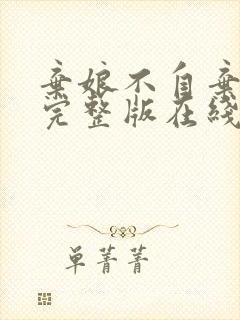 弃娘不自弃
完整版在线
单菁菁